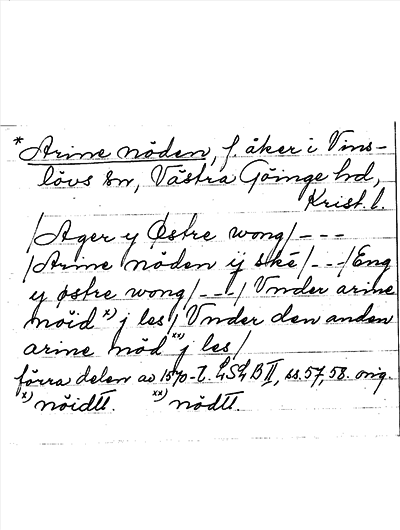 * Arine nöden, f. åker i Vins-
lövs sn, Västra Göinge hd,
Krist. l.
/Ager y Østre wong/---
/Arine nöden ij ské/---/Eng
y østre wong/---/ Vnder arine
möid x) j les/ Vnder den anden
arine nöd xx) j les/
förra delen av 1570-t. LSLB II, ss. 57, 58. orig.
x) nöidtt. xx) nödtt.